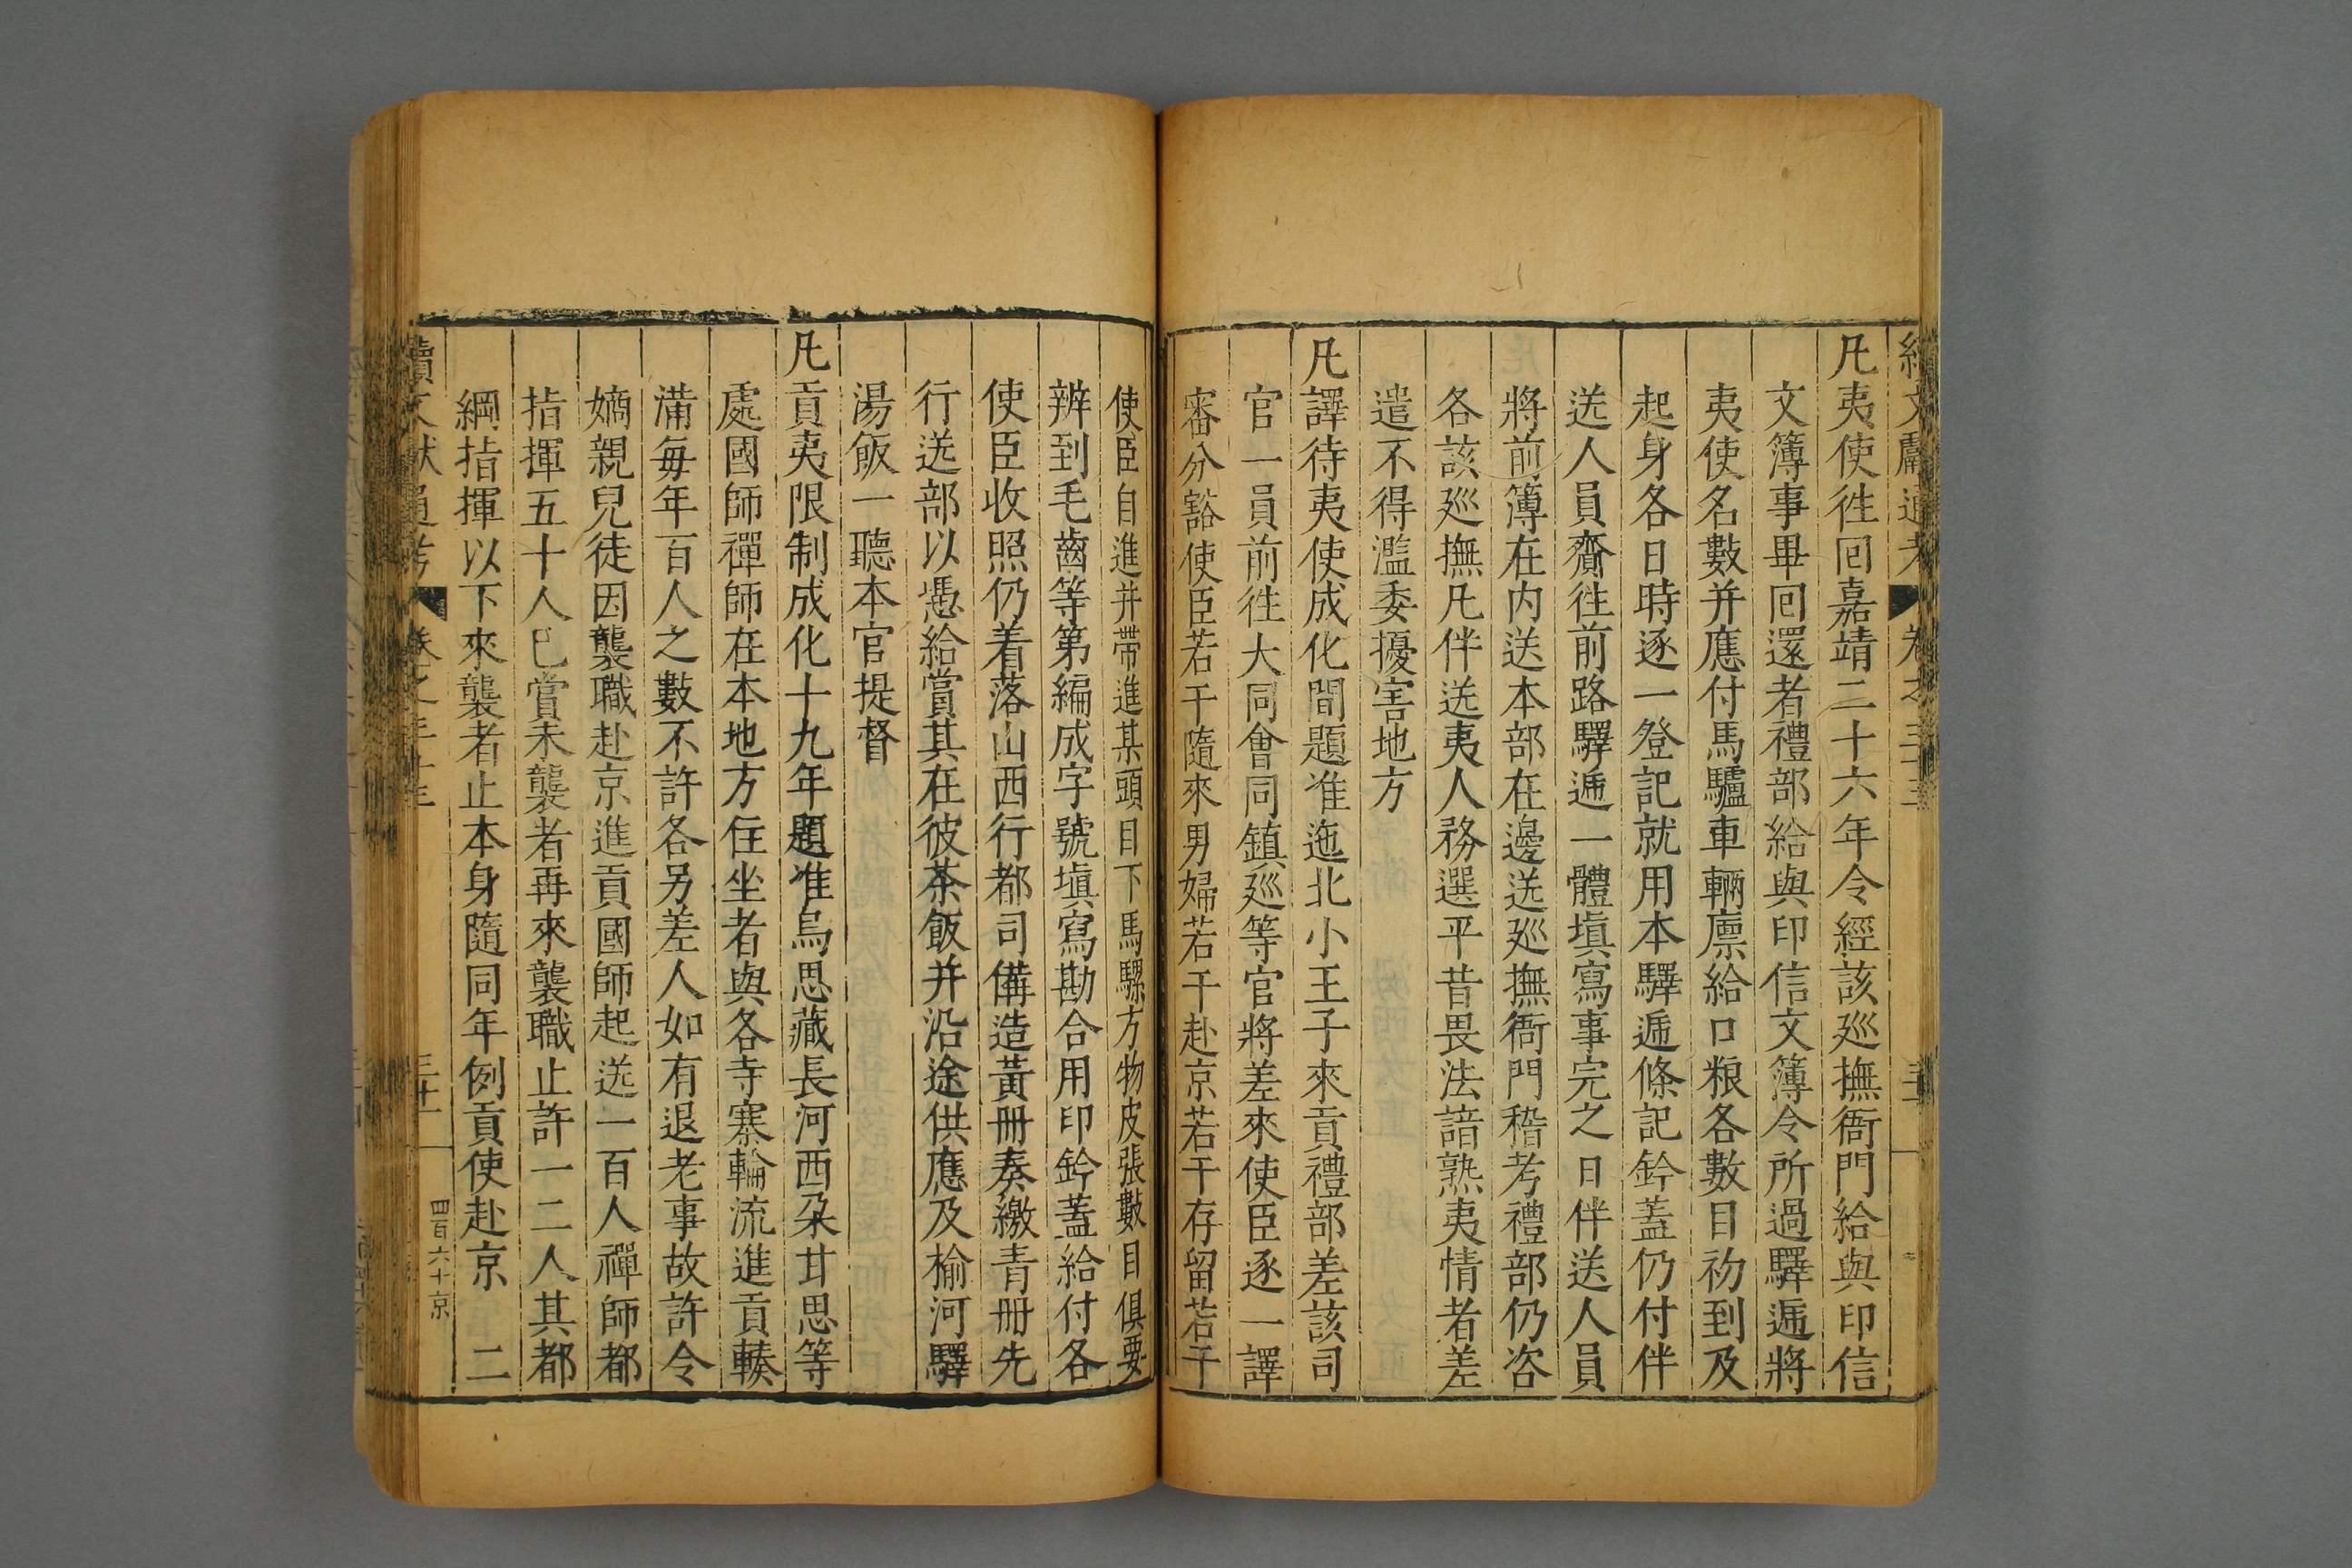 凡夷使徃囘嘉靖二十六年令經該廵撫衙門給與印信
文簿事畢囘還者禮部給與印信文簿令所過驛遞將
夷使名數并應付馬驢車輛廪給口粮各數目初到及
起身各日時逐一登記就用本驛遞條記鈐蓋仍付伴
送人員齎徃前路驛遞一體塡寫事完之日伴送人員
將前簿在内送本部在邊送廵撫衙門稽考禮部仍咨
各該廵撫凡伴送夷人務選平昔畏法諳熟夷情者差
遣不得濫委擾害地方
凡譯待夷使成化間題准迤北小王子來貢禮部差該司
官一員前徃大同會同鎮廵等官將差來使臣逐一譯
審分豁使臣若干隨來男婦若干赴京若干存留若干
使臣自進并帶進某頭目下馬騾方物皮張數目俱要
辨到毛齒等第編成字號塡寫勘合用印鈐蓋給付各
使臣收照仍着落山西行都司備造黃冊奏繳青冊先
行送部以憑給賞其在彼茶飯并沿途供應及榆河驛
湯飯一聽本官提督
凡貢夷限制成化十九年題准烏思藏長河西朶甘思等
處國師禪師在本地方住坐者與各寺寨輪流進貢輳
滿每年百人之數不許各另差人如有退老事故許令
嫡親兒徒因襲職赴京進貢國師起送一百人禪師都
指揮五十人已賞未襲者再來襲職止許一二人其都
綱指揮以下來襲者止本身隨同年例貢使赴京　二
續文獻通考　卷之二百三十三　三十一　四百六十京